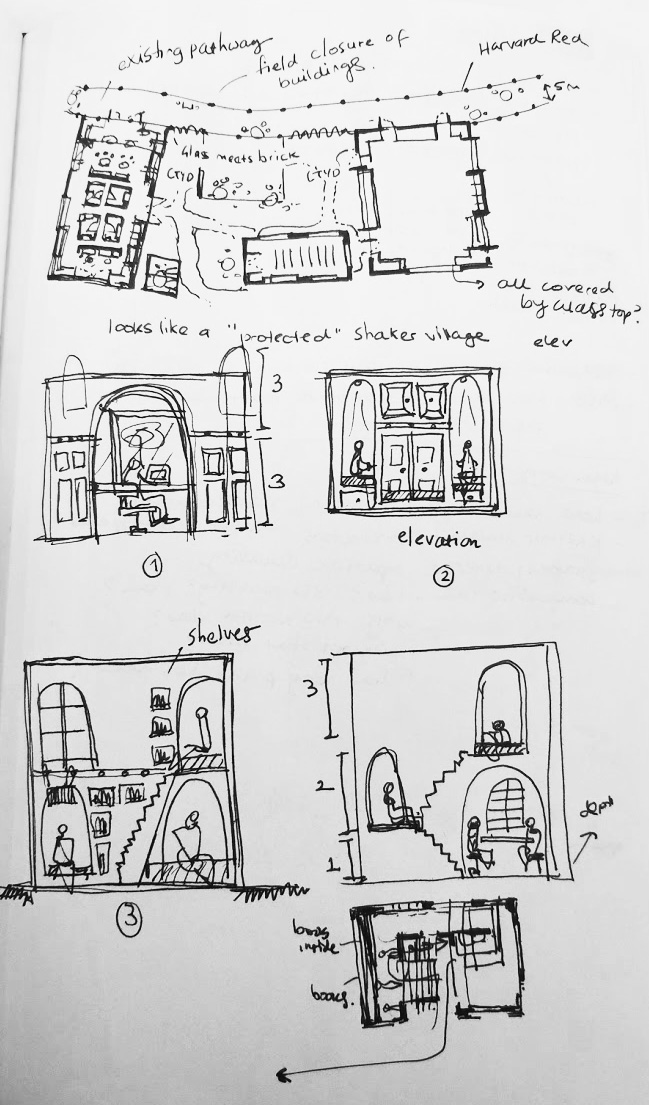 existing pathway
field closure of
buildings.
Harvard Red
5m
Glass meets brick
CTYD
CTYD
all covered
by Glass top?
looks like a "protected" shaker village
elev
3
3
1
elevation
2
shelves
3
3
2
1
dept
books
inside
books.